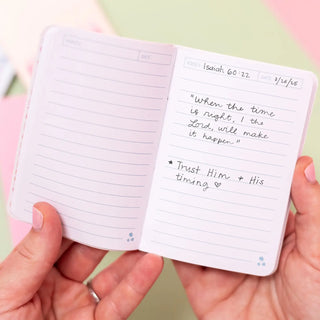 Isaiah 60:22
DATE
"When the time
is right, I the
Lord, will make
it happen"
* Trust Him + His
timing ♡